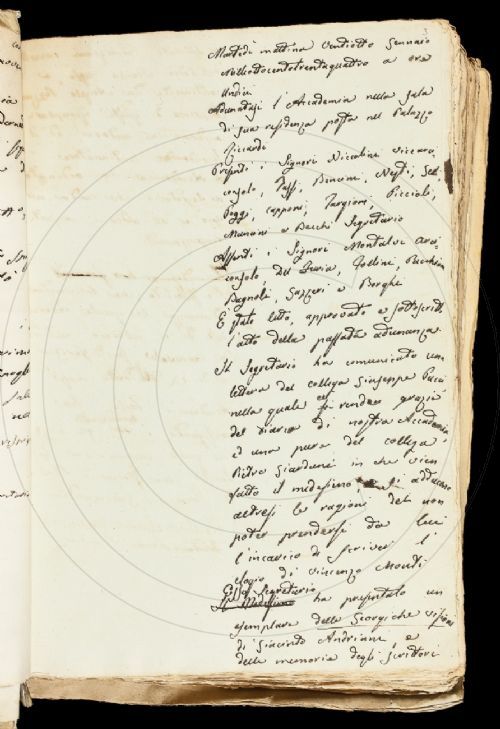 3
Martedì mattina Ventotto Gennaio
milleottocentotrentaquattro a ora
undici
Adunatasi l'Accademia nella sala
di sua residenza posta nel Palazzo
Riccardi
Presenti i Signori Niccolini viccarci
consolo, Bencini, Nesti,
Poggi, Capponi, Targioni, Riccioli,
Mancini e Becchi Segretario
Assenti i Signori Montalvi Arci-
consolo, Del Furia, Follini,
Bagnoli, Gazzeri e Borghi
È stato letto, approvato e sottoscritto
l'atto della passata adunanza
Il Segretario ha comunicato una
lettera del collega Giuseppe Pucci
nella quale si rendeva grazie
del Diario di nostra Accademia,
ed una pure del collega
Pietro Giordani in che vien
fatto il medesimo, si adducono
altresì le ragioni del non
poter prendersi da lui
l'incarico di scriver l'
elogio di Vincenzo Monti
Esso Segretario
Il Medesimo ha presentato un
esemplare delle Georgiche
di Giacinto Andriani, e
delle memoria degli scrittori